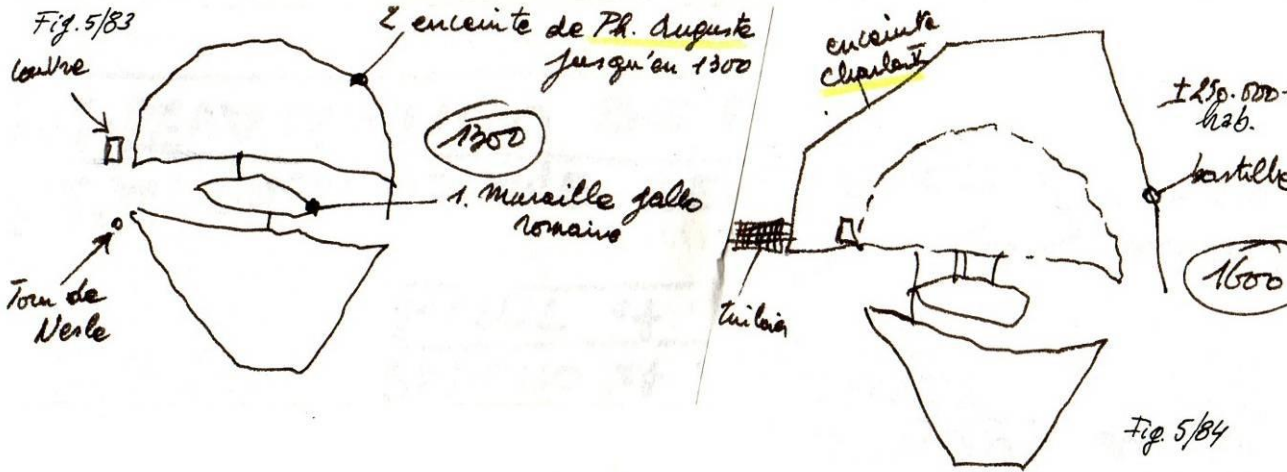 Fig. 5/83
Louvre
2 enceinte de Ph. Auguste
jusqu'en 1300
1300
1. Muraille gallo
romaine
Tour de
Nesle
enceinte
Charles V
± 250.000
hab.
bastille
1600
tuileries
Fig. 5/84